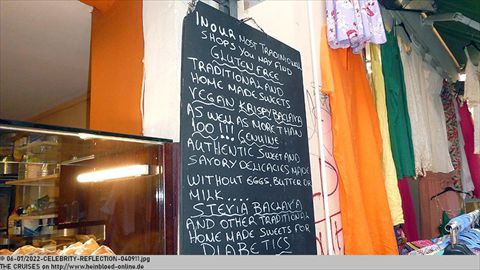 IN OUR MOST TRADITIONAL
SHOPS YOU MAY FIND
GLUTEN FREE
TRADITIONAL AND
HOME MADE SWEETS
VEGAN KRISPY BACLAVA
AS WELL AS MORE THAN
100 !!! GENUINE
AUTHENTIC SWEET AND
SAVORY DELICACIES MADE
WITHOUT EGGS, BUTTER OR
MILK....
STEVIA BACLAVA
AND OTHER TRADITIONAL
HOME MADE SWEETS FOR
DIABETICS
© 06-01/2022-CELEBRITY-REFLECTION-040911.jpg
THE CRUISES on http://www.heinbloed-online.de